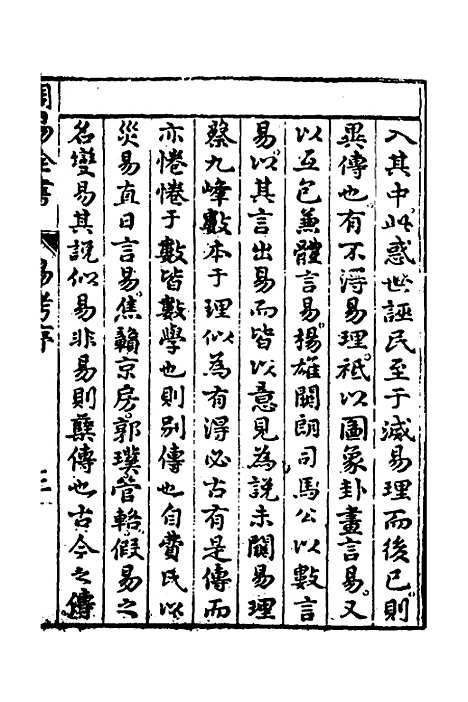 入其中此惑世誣民至于滅易理而後已則
異傳也有不得易理祗以圖象卦畫言易又
以互包兼體言易楊雄關朗司馬公以數言
易以其言出易而皆以意見為說未關易理
蔡九峰數本于理似為有得必古有是傳而
亦惓惓于數皆數學也則別傳也自費氏以
災易直日言易焦贛京房郭璞管輅假易之
名變易其說似易非易則孽傳也古今之傳
周易全書
易考序
三